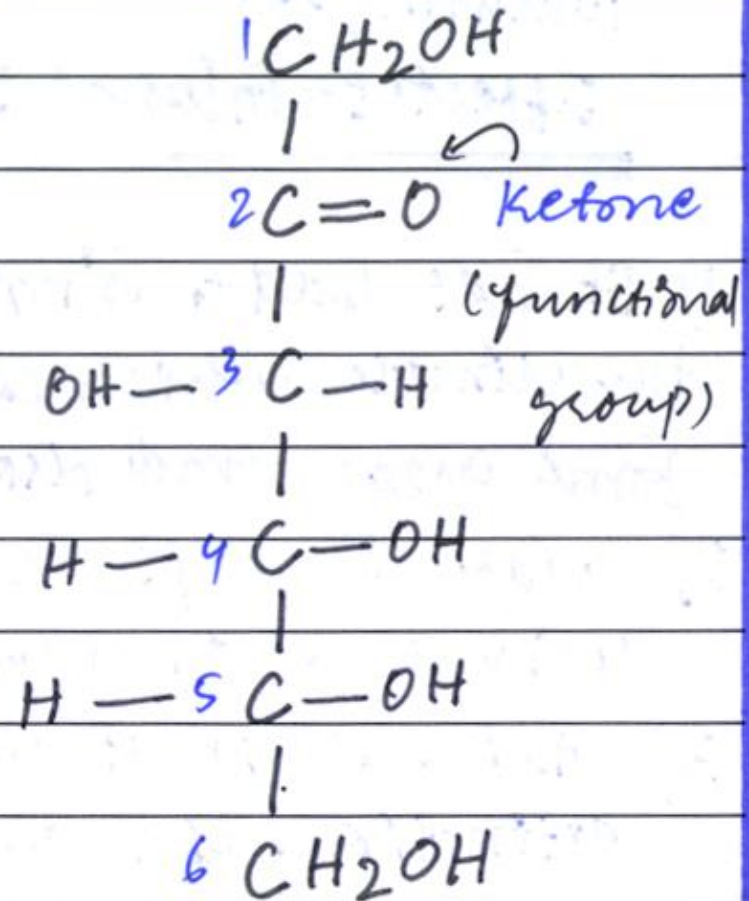 1CH2OH
|
2C=O Ketone
| (functional
OH—3C—H group)
|
H—4C—OH
|
H—5C—OH
|
6CH2OH